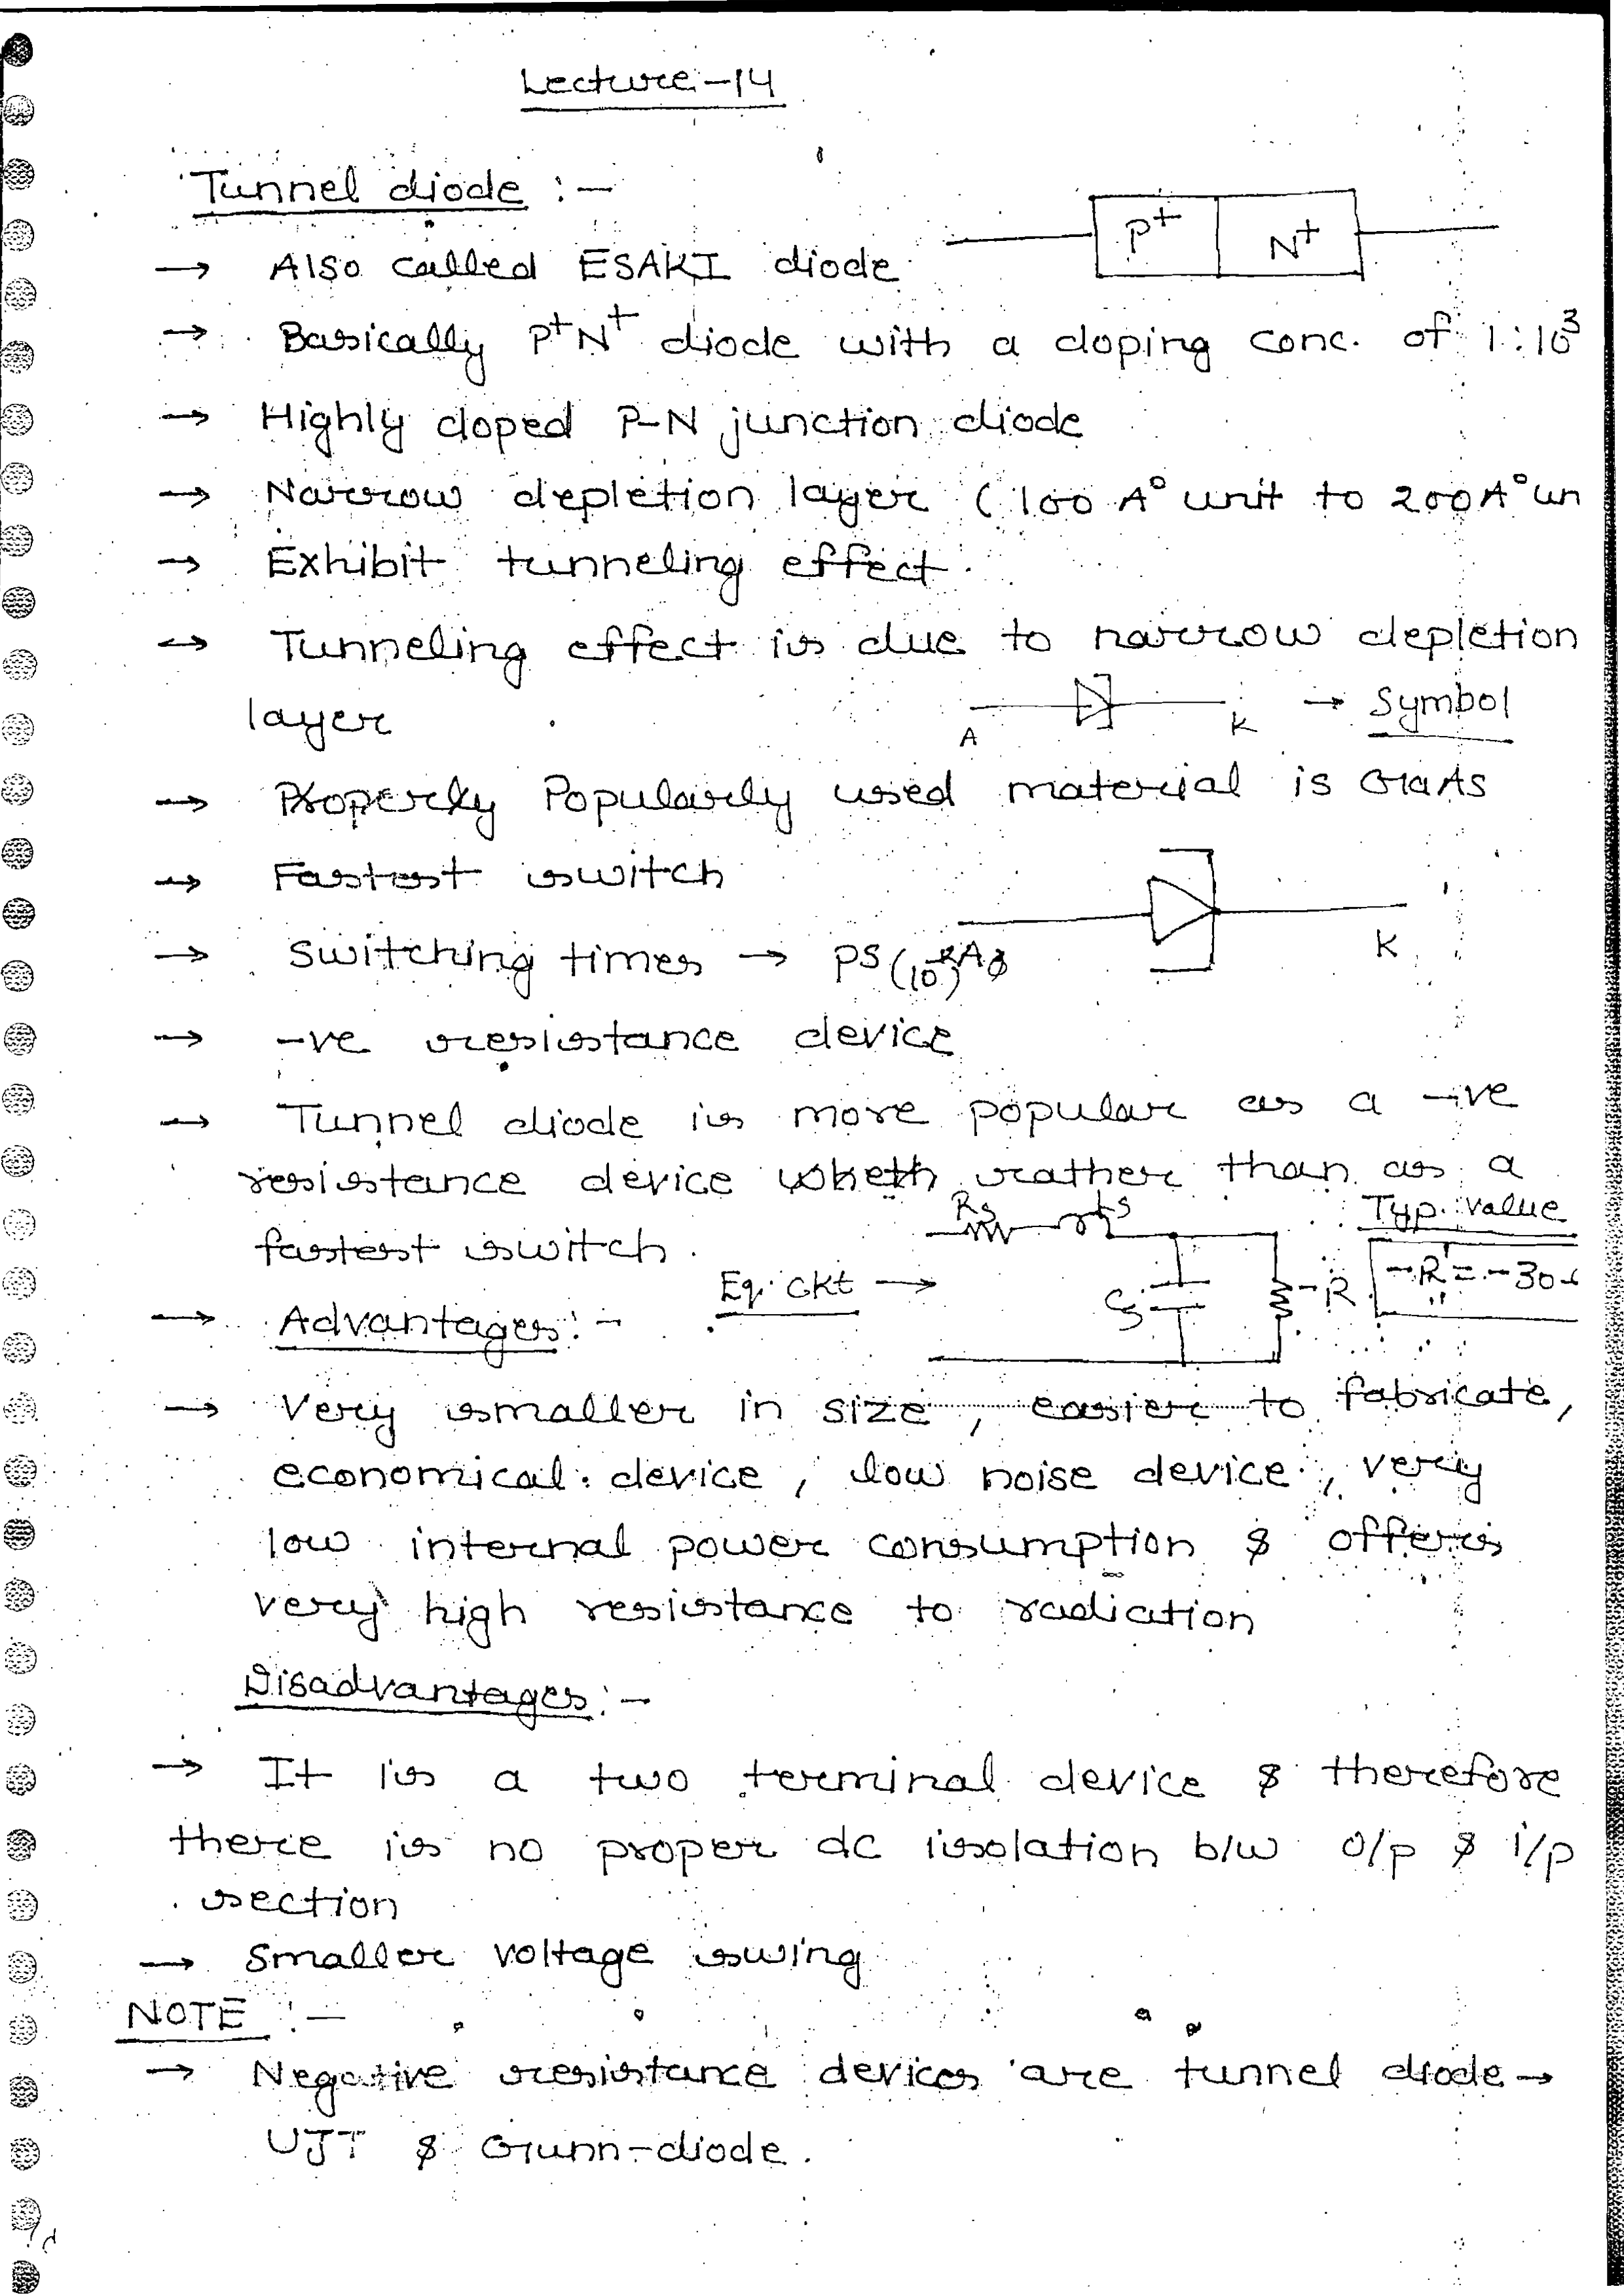 Lecture-14
Tunnel diode :-
P+ N+
→ Also called ESAKI diode
→ Basically P+N+ diode with a doping conc. of 1:10³
→ Highly doped P-N junction diode
→ Narrow depletion layer (100 A° unit to 200A° un
→ Exhibit tunneling effect
→ Tunneling effect is due to narrow depletion
layer
A K → Symbol
→ Popularly used material is GaAs
→ Fastest switch
→ Switching times → PS
K
→ -ve resistance device
→ Tunnel diode is more popular as a -ve
resistance device rather than as a
fastest switch.
Rs Ls
Typ. value
Eq. ckt →
Cj -R
-R = -30
→ Advantages :-
→ Very smaller in size, easier to fabricate,
economical device, low noise device, very
low internal power consumption & offers
very high resistance to radiation
Disadvantages :-
→ It is a two terminal device & therefore
there is no proper dc isolation b/w o/p & i/p
section
→ Smaller voltage swing
NOTE :-
→ Negative resistance devices are tunnel diode →
UJT & Gunn-diode.